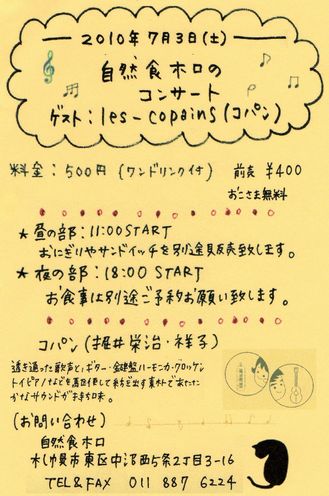 2010年7月3日(土)
自然食ホロの
コンサート
ゲスト:les-copains(コパン)
料金:500円(ワンドリンク付) 前売 ¥400
おこさま無料
★昼の部:11:00 START
おにぎりやサンドイッチを別途販売致します。
★夜の部:18:00 START
お食事は別途ご予約お願い致します。
コパン(堀井栄治・祥子)
透き通った歌声と、ギター・鍵盤ハーモニカ・グロッケン
トイピアノなどを
かなサウンドがお持ち味。
(お問い合わせ)
自然食ホロ
札幌市東区中沼西5条2丁目3-16
TEL&FAX 011 887 6224